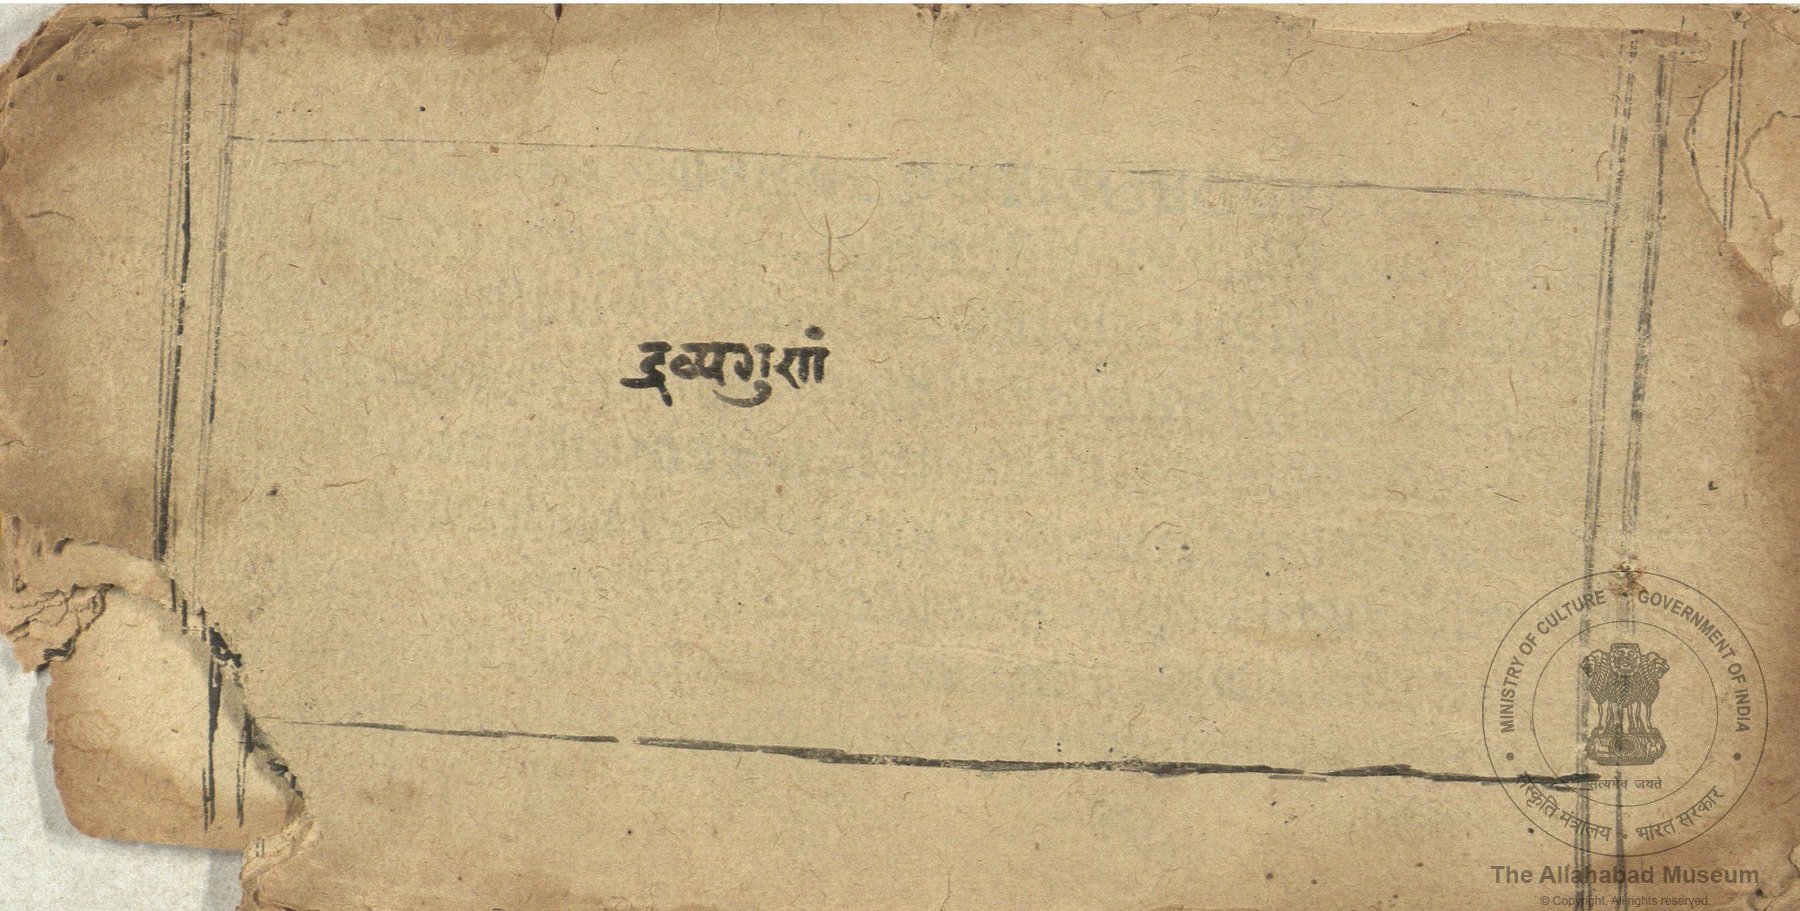 द्रव्यगुणां
MINISTRY OF CULTURE
GOVERNMENT OF INDIA
सत्यमेव जयते
संस्कृति मंत्रालय • भारत सरकार
The Allahabad Museum
© Copyright, All rights reserved.